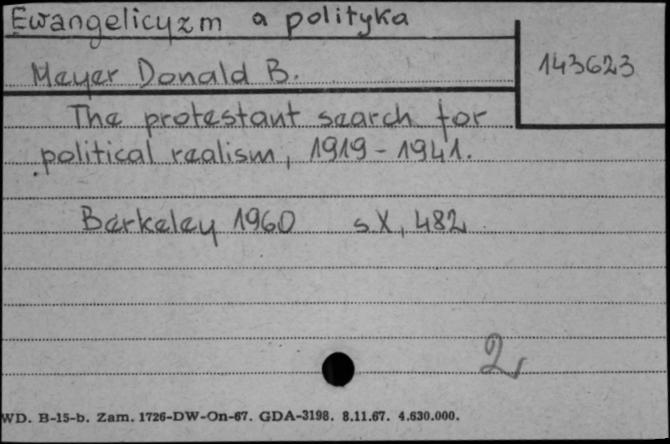 Ewangelicyzm a polityka
143623
Meyer Donald B.
The protestant search for
political realism, 1919-1941.
Berkeley 1960 s X, 482
2
WD. B-15-b. Zam. 1726-DW-On-67. GDA-3198. 8.11.67. 4.630.000.